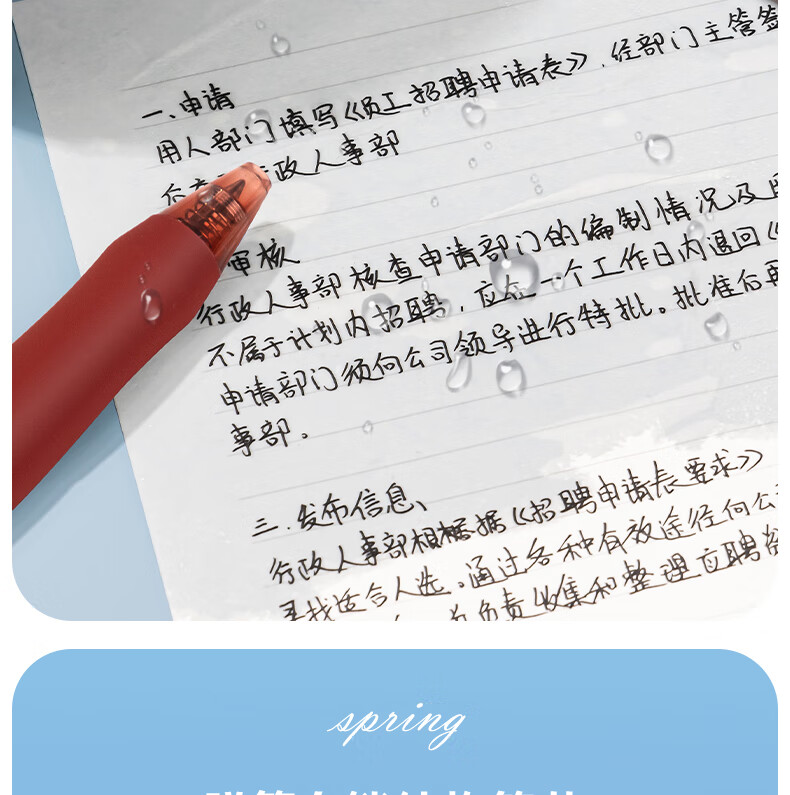 一、申请
用人部门填写《员工招聘申请表》，经部门主管签
政人事部
审核
行政人事部核查申请部门的编制情况及
不属于计划内招聘，应在一个工作日内退回《
申请部门须向公司领导进行特批。批准后再
事部。
三.发布信息、
行政人事部根据据《招聘申请表要求》
寻找适合人选。通过各种有效途径向公
负责收集和整理应聘
spring